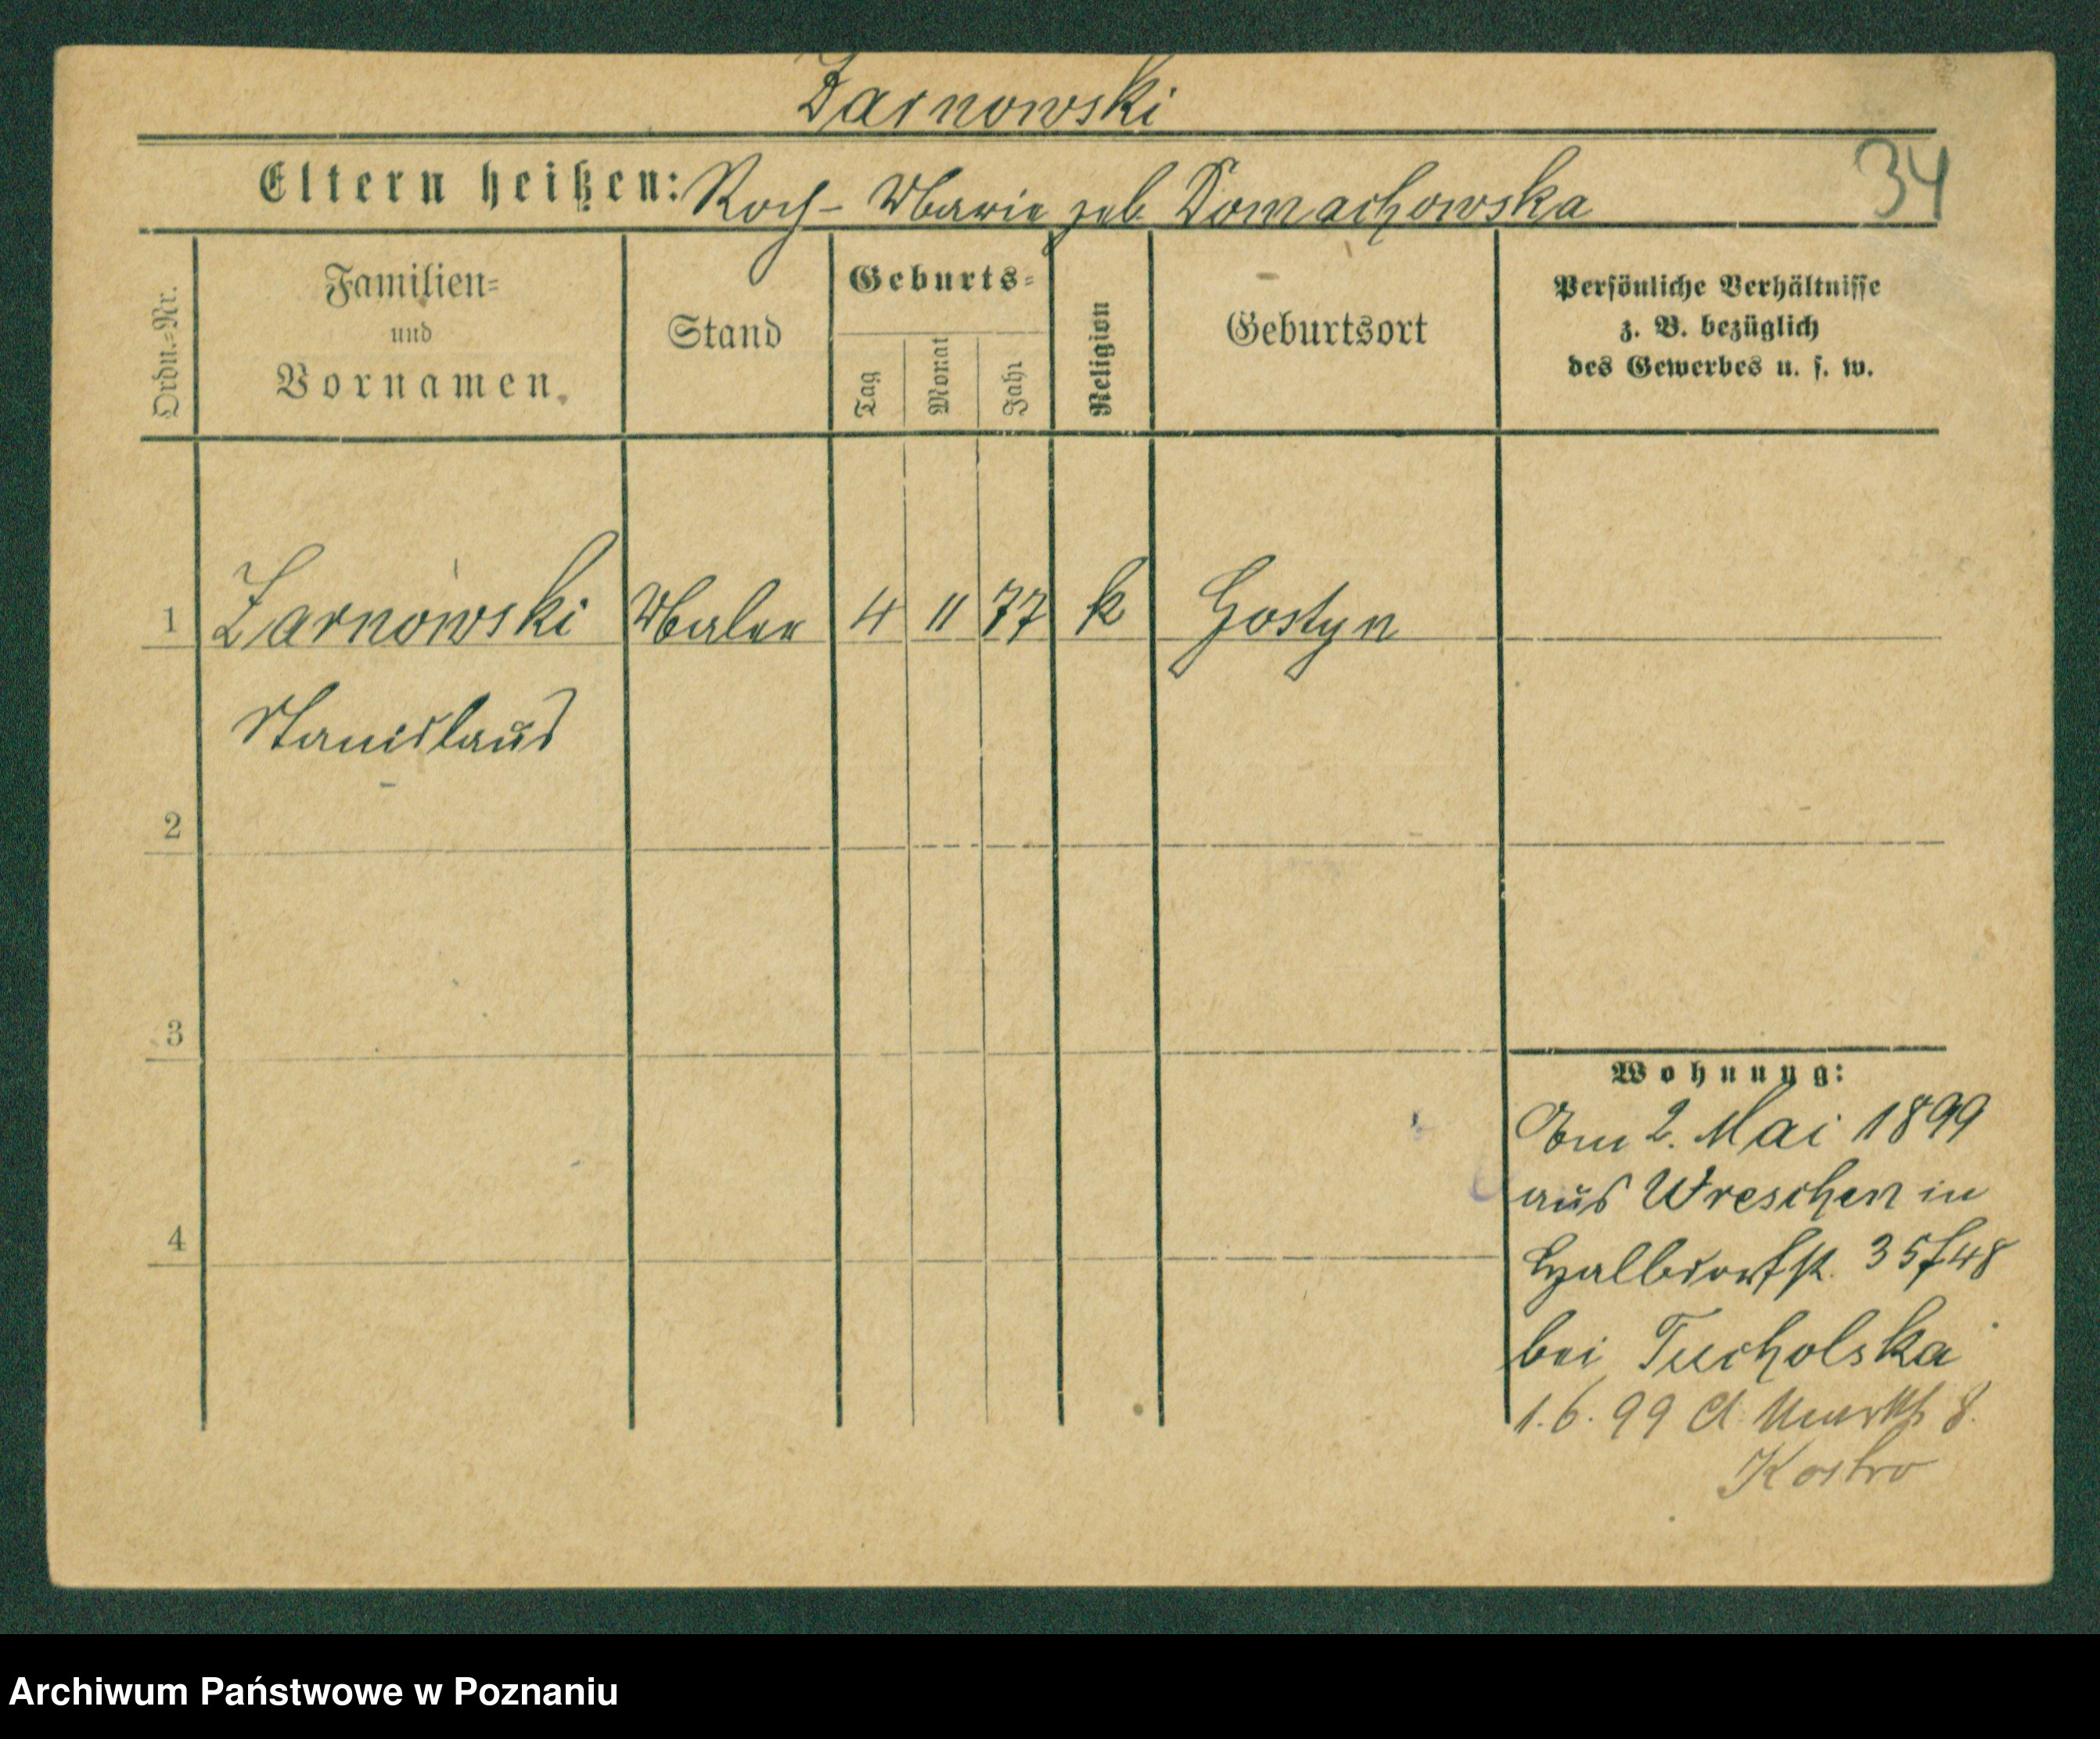 Żarnowski
Eltern heißen: Roch - Marie geb Domachowska
34
Ordn.=Nr.
Familien=
und
Vornamen.
Stand
Geburts=
Tag
Monat
Jahr
Religion
Geburtsort
Persönliche Verhältnisse
z. B. bezüglich
des Gewerbes u. s. w.
1 Żarnowski Maler 4 11 77 k Gostyn
Stanislaus
2
3
4
Wohnung:
Am 2. Mai 1899
aus Wreschen in
Halbdorfst.
bei Tucholska
1.6.99 A. Markt 8.
Kostro
Archiwum Państwowe w Poznaniu